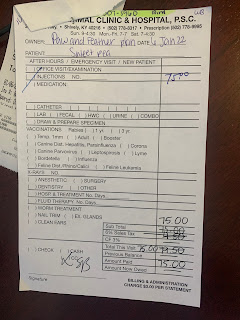 ANIMAL CLINIC & HOSPITAL, P.S.C.
Shively, KY 40216 • (502) 778-8317 • Prescription (502) 778-9985
Sun. 9-4:30 Mon.-Fri. 7-7 Sat. 7-4:30
OWNER: Paw and Feather plan DATE 4 Jan 22
PATIENT: Sweet pea
AFTER HOURS / EMERGENCY VISIT / NEW PATIENT
OFFICE VISIT/EXAMINATION
INJECTIONS NO. 75.00
MEDICATION:
CATHETER
LAB ( ) FECAL ( ) HWC ( ) URINE ( ) COMBO
DRAW & PREPARE SPECIMEN
VACCINATIONS Rabies ( ) 1 yr. ( ) 3 yr.
Temp. 1mm ( ) Adult ( ) Booster
Canine Dist. Hepatitis, Parainfluenza ( ) Corona
Canine Parvovirus ( ) Leptospirosis ( ) Lyme
Bordetella ( ) Influenza
Feline Dist./Rhino/Calici ( ) Feline Leukemia
X-RAYS NO.
ANESTHETIC ( ) SURGERY
DENTISTRY ( ) OTHER
HOSP & TREATMENT No. Days
FLUID THERAPY No. Days
WORM TREATMENT
NAIL TRIM ( ) EX. GLANDS
CLEAN EARS
Sub Total 75.00
6% Sales Tax
CF 3%
Total This Visit 75.00
Previous Balance
Amount Paid 75.00
Amount Now Owed
( ) CHECK ( ) CASH
Signature
BILLING & ADMINISTRATION
CHARGE $5.00 PER STATEMENT